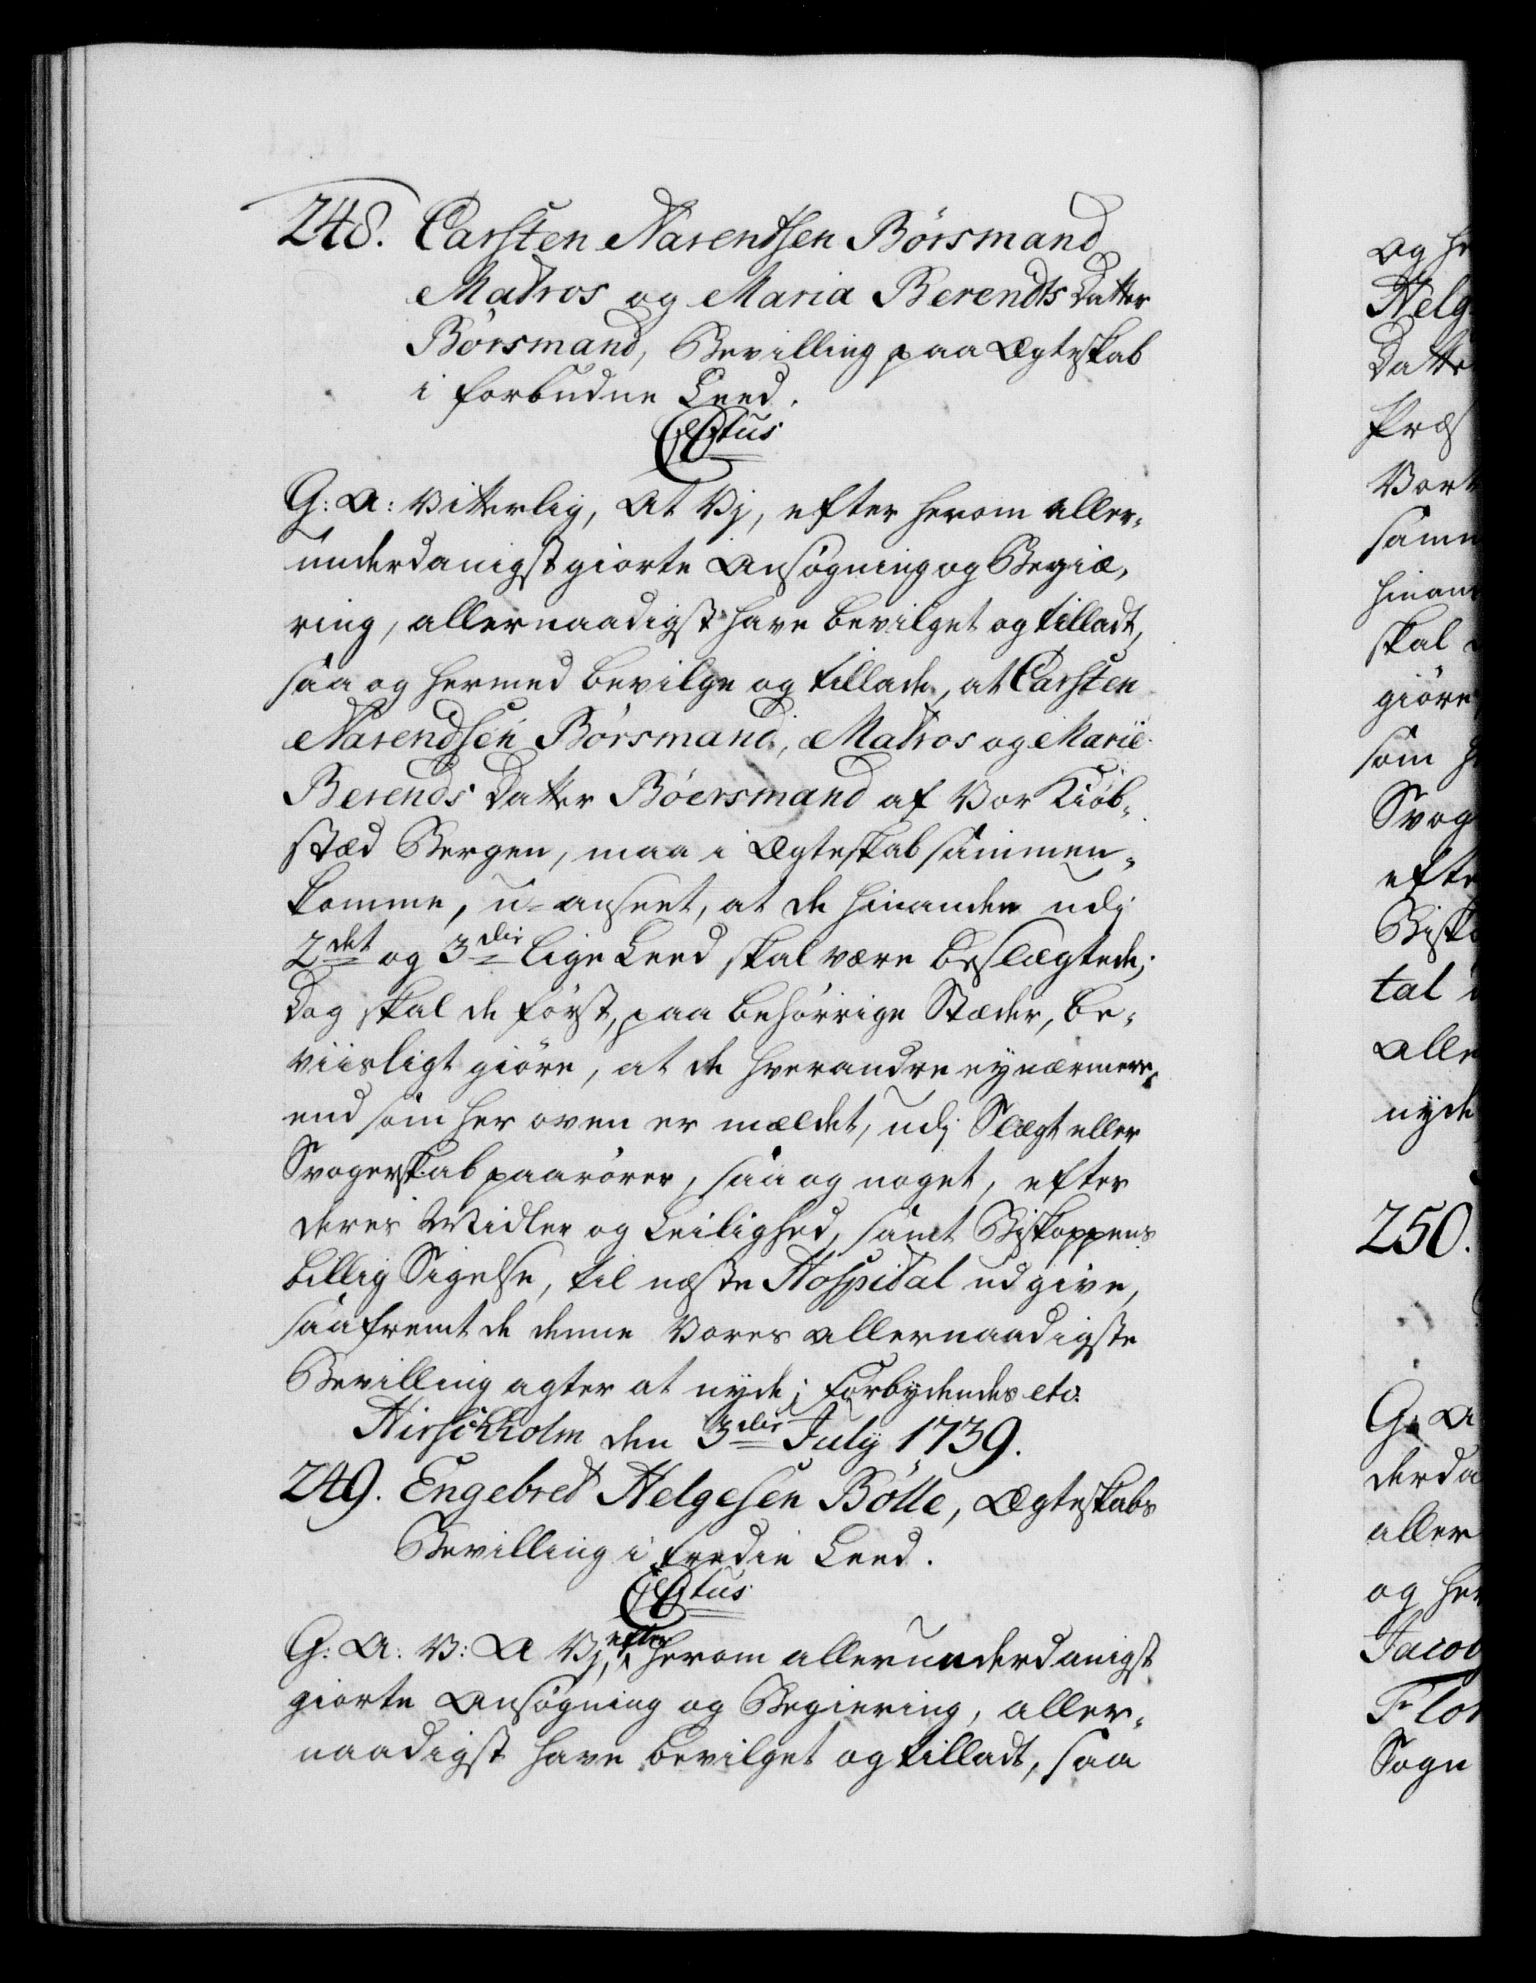 248. Carsten Narendsen Børsmand
Matros og Maria Berendts Datter
Børsmand, Bevilling paa Ægteskab
i forbudne Leed.
C6tus
G: A: Vitterlig, At Vj, efter herom aller-
underdanigst giorte Ansøgning og Begiæ-
ring, allernaadigst have bevilget og tilladt,
saa og hermed bevilge og tillade, at Carsten
Narendsen Børsmand, Matros og Marie
Berends Datter Böersmand af Vor Kiøb-
stæd Bergen, maa i Ægteskab sammen-
komme, u-anseet, at de hinanden udj
2det og 3die lige Leed skal være beslægtede;
Dog skal de først, paa behørrige Stæder, be-
viisligt giøre, at de hverandre ey nærmere,
end som her oven er mældet, udj Slægt eller
Svogerskab paarører, saa og noget, efter
deres Midler og Leilighed, samt Biskoppens
billig Sigelse, til næste Hospital udgive,
saafremt de denne Vores allernaadigste
Bevilling agter at nyde; Forbydendes etc.
Hirschholm den 3die July 1739.
249. Engebret Helgesen Bölle, Ægteskabs
Bevilling i tredie Leed.
C6tus
G: A: V: A Vj, efter herom allerunderdanigst
giorte Ansøgning og Begiering, aller-
naadigst have bevilget og tilladt, saa
og he
Helg
Datte
Præs
Vor
samm
hinan
skal
giøre
som h
Svog
efte
Bisko
tal
alle
nyde
250.
G: A
derda
aller
og her
Jacob
Flor
Sogn